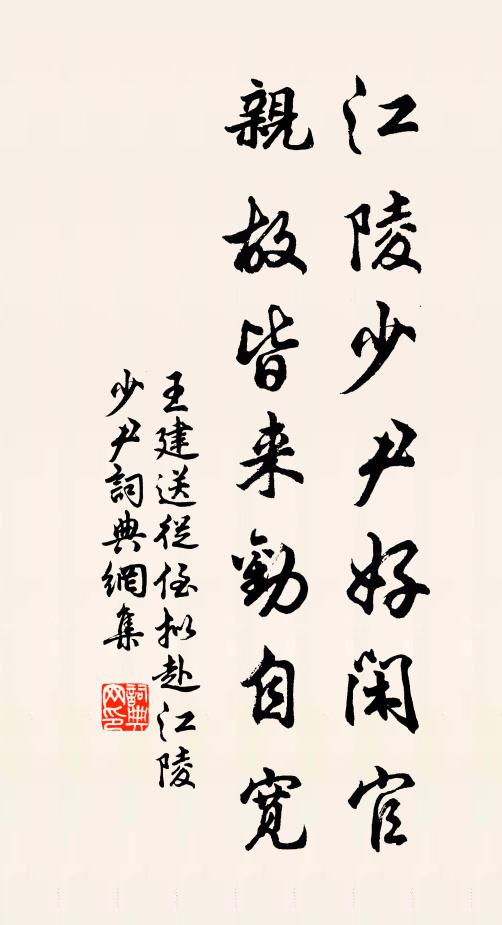 江陵少尹好閑官
親故皆来勸自寬
王建送從侄拟赴江陵
少尹詞典網集
詞典网印